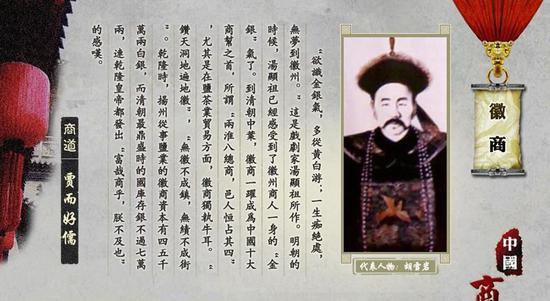 徽商
中國商
代表人物：胡雪岩
"欲識金銀氣，多從黄白游；一生痴絕處，
無夢到徽州。"這是戲劇家湯顯祖所作。明朝的
時候，湯顯祖已經感受到了徽州商人一身的"金
銀"氣了。到清朝中葉，徽商一躍成爲中國十大
商幫之首，所謂"兩淮八總商，邑人恒占其四"
，尤其是在鹽茶業貿易方面，徽商獨執牛耳。"
鑽天洞地遍地徽"，"無徽不成鎮，無績不成街
"。乾隆時，揚州從事鹽業的徽商資本有四五千
萬兩白銀，而清朝最鼎盛時的國庫存銀不過七萬
兩，連乾隆皇帝都發出"富哉商乎，朕不及也"
的感嘆。
商道 賈而好儒